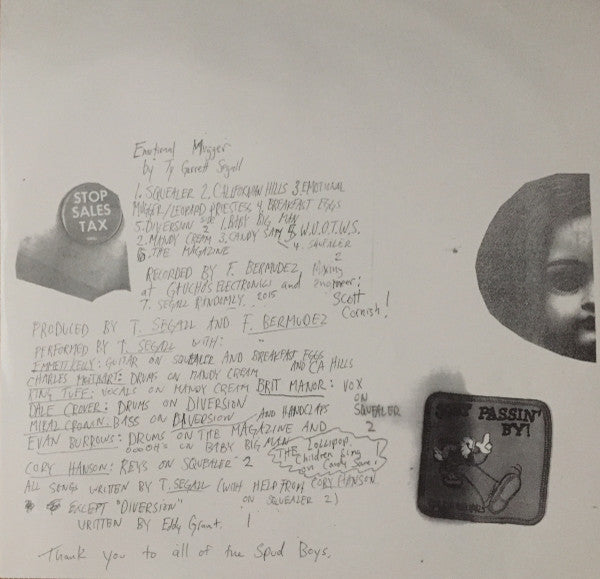 STOP
SALES
TAX
Emotional Mugger
by Ty Garrett Segall
1. SQUEALER 2. CALIFORNIAN HILLS 3. EMOTIONAL
MUGGER/LEOPARD PRIESTESS 4. BREAKFAST EGGS
5. DIVERSION SIDE 2 1. BABY BIG MAN
2. MANDY CREAM 3. CANDY SAM 5. W.U.O.T.W.S.
6. THE MAGAZINE 4. SQUEALER 2
RECORDED BY F. BERMUDEZ, Mixing
at GAUCHOS ELECTRONICS and
T. SEGALL RANDOMLY. 2015
Scott
Cornish!
PRODUCED BY T. SEGALL AND F. BERMUDEZ
PERFORMED BY T. SEGALL WITH:
EMMETT KELLY: GUITAR ON SQUEALER AND BREAKFAST EGGS
AND CA HILLS
CHARLES MOOTHART: DRUMS ON MANDY CREAM
KING TUFF: VOCALS ON MANDY CREAM BRIT MANOR: VOX
ON SQUEALER 2
DALE CROVER: DRUMS ON DIVERSION
MIKAL CRONIN: BASS ON DIVERSION AND HANDCLAPS
EVAN BURROWS: DRUMS ON THE MAGAZINE AND
OOOOH'S ON BABY BIG MAN
CORY HANSON: KEYS ON SQUEALER 2
THE Lollipop
Children Sing
on Candy Sam!
ALL SONGS WRITTEN BY T. SEGALL (WITH HELP FROM CORY HANSON
ON SQUEALER 2)
EXCEPT "DIVERSION"
WRITTEN BY Eddy Grant.
Thank you to all of the Spud Boys.
JUST PASSIN'
BY!